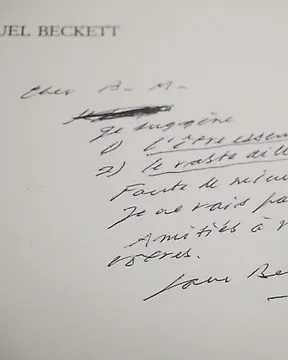 UEL BECKETT
Cher A. M.
Je suggère
1) L'être essen
2) le reste aille
Faute de mieux
Je ne vais pa
Amitiés à v
vôtres.
Sam Be